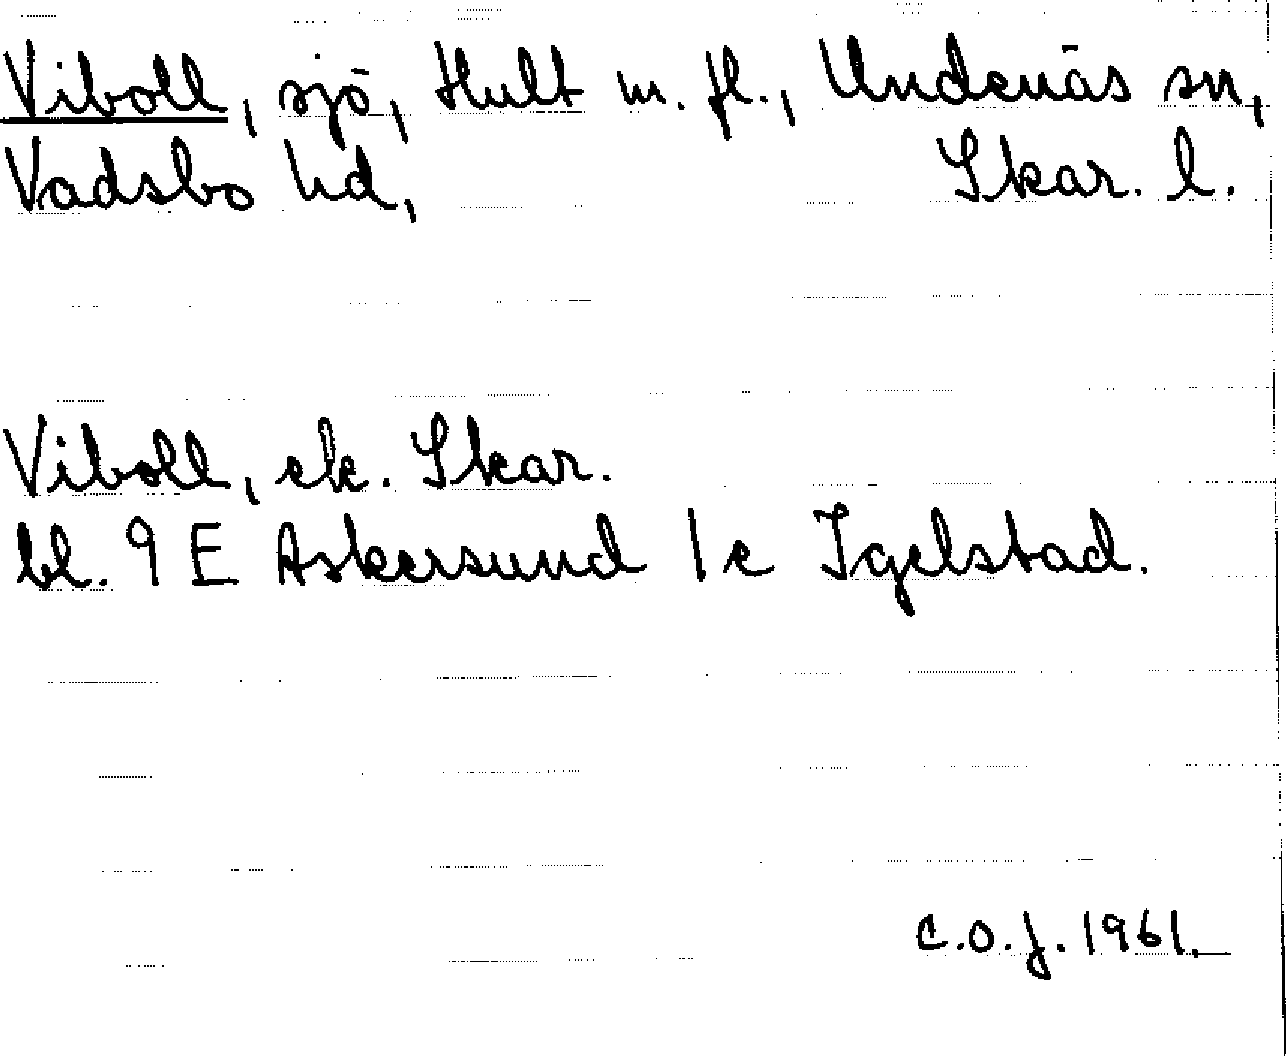 Viboll, sjö, Hult m. fl., Undenäs sn,
Vadsbo hd, Skar. l.
Viboll, ek. Skar.
bl. 9 E Askersund 1 c Igelstad.
C.O.J. 1961.